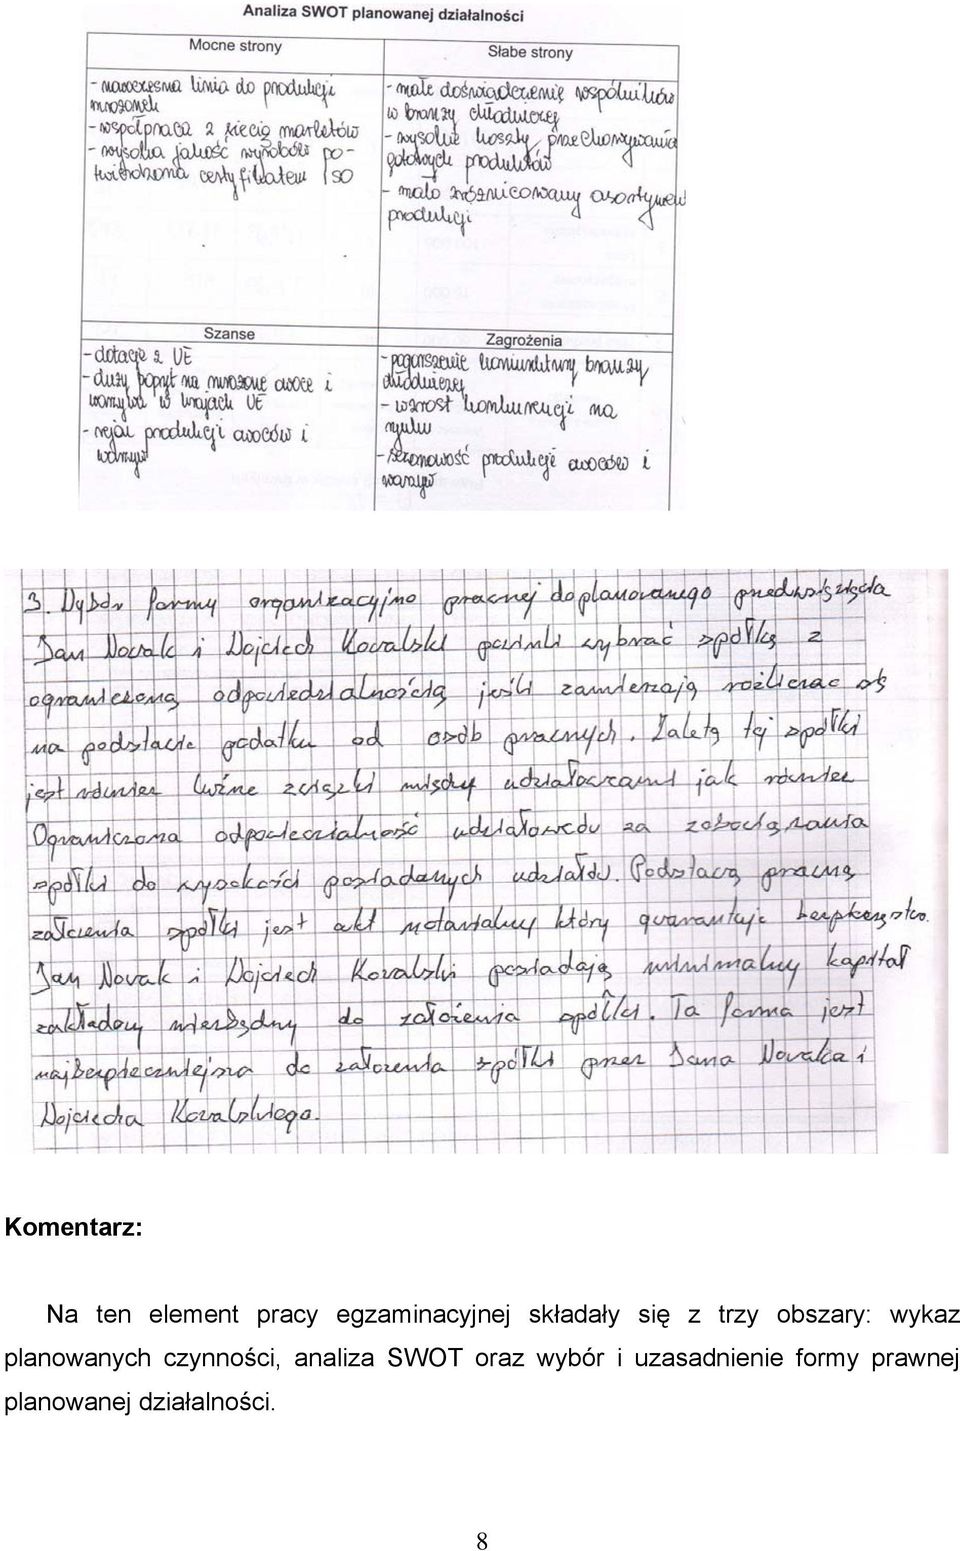 Analiza SWOT planowanej działalności
Mocne strony
- nowoczesna linia do produkcji
mrożonek
- współpraca z siecią marketów
- wysoka jakość wyrobów po-
twierdzona certyfikatem ISO
Słabe strony
- małe doświadczenie wspólników
w branży chłodniczej
- wysokie koszty przechowywania
gotowych produktów
- mało zróżnicowany asortyment
produkcji
Szanse
- dotacje z UE
- duży popyt na mrożone owoce i
warzywa w krajach UE
- rejon produkcji owoców i
warzyw
Zagrożenia
- pogorszenie koniunktury branży
chłodniczej
- wzrost konkurencji na
rynku
- sezonowość produkcji owoców i
warzyw
3. Wybór formy organizacyjno prawnej do planowanego przedwsięzięcia
Jan Nowak i Wojciech Kowalski powinni wybrać spółkę z
ograniczoną odpowiedzialnością jeśli zamierzają rozliczać się
na podstacie podatku od osób prawnych. Zaletą tej spółki
jest również luźne związki między udziałowcami jak również
Ograniczona odpowieczialność udziałowców za zobowiązania
spółki do wysokości posiadanych udziałów. Podstawą prawną
założenia spółki jest akt notarialny który gwarantuje bezpkeczęstwo.
Jan Nowak i Wojciech Kowalski posiadają minimalny kapitał
zakładowy niezbędny do założenia spółki. Ta forma jest
najbezpieczniejsza do założenia spółki przez Jana Nowaka i
Wojciecha Kowalskiego.
Komentarz:
Na ten element pracy egzaminacyjnej składały się z trzy obszary: wykaz
planowanych czynności, analiza SWOT oraz wybór i uzasadnienie formy prawnej
planowanej działalności.
8